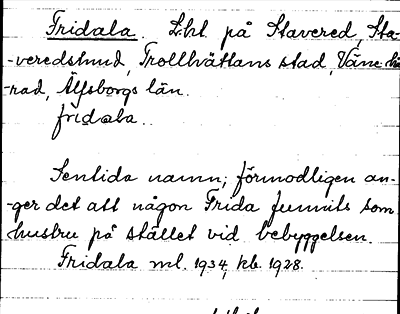 Fridala. Lht på Stavered, Sta-
-veredstund, Trollhättans stad, Väne hä-
-rad, Älfsborgs län.
fridala.
Sentida namn; förmodligen an-
-ger det att någon Frida funnits som
hustru på stället vid bebyggelsen.
Fridala ml. 1934, kb. 1928.